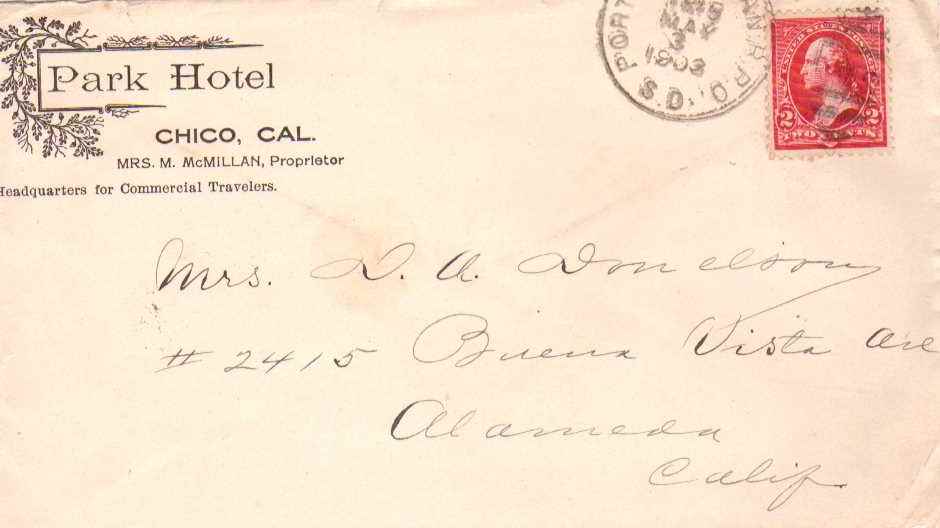 Park Hotel
CHICO, CAL.
MRS. M. McMILLAN, Proprietor
Headquarters for Commercial Travelers.
MAY
3
1903
S.D.
R.P.O.
2 2
TWO CENTS
Mrs. D. A. Donelson
# 2415 Buena Vista Ave
Alameda
Calif.